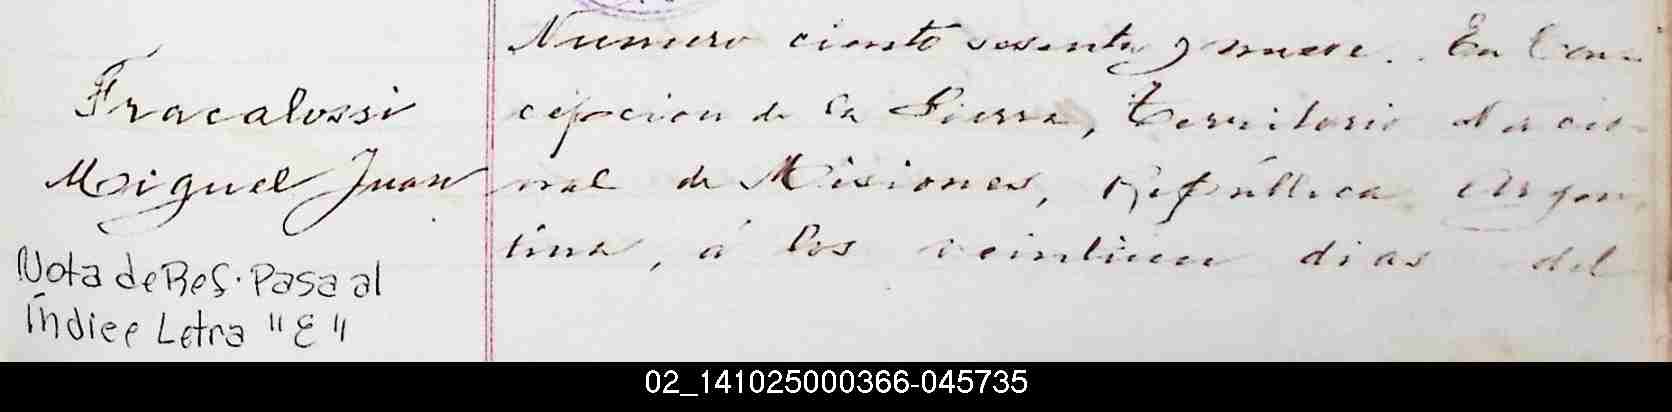 Fracalossi
Miguel Juan
Nota de Ref. Pasa al
Índice Letra "E"
Numero ciento sesenta y nueve. En Con-
cepcion de la Sierra, Territorio Nacio-
nal de Misiones, República Argen-
tina, á los veintiun dias del
02_141025000366-045735